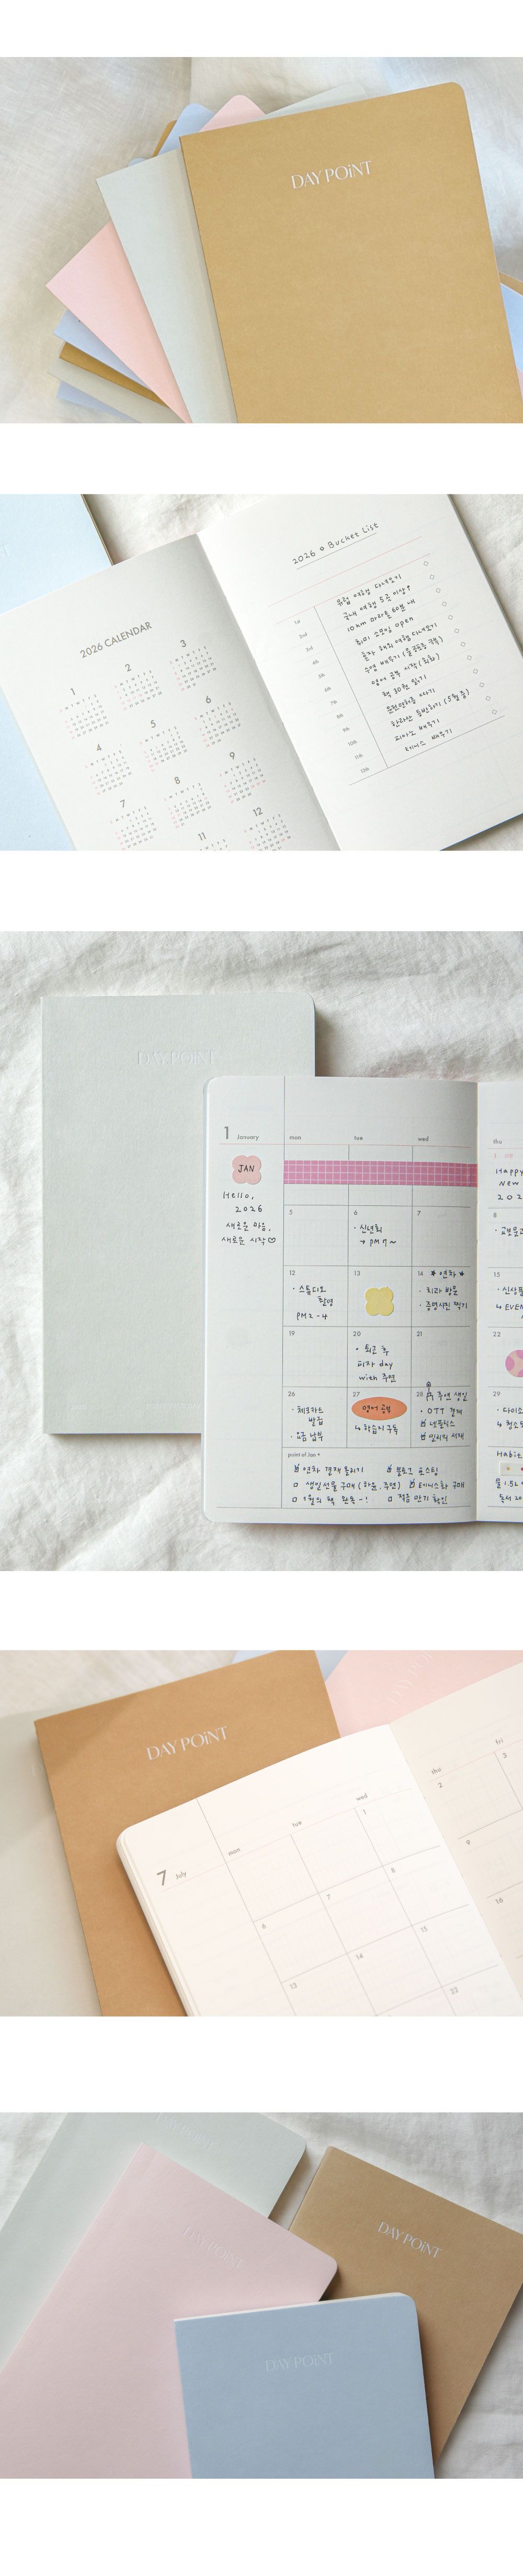 DAY POiNT
2026 CALENDAR
1
2
3
4
5
6
7
8
9
11
12
2026 ⋄ Bucket List
1st 유럽 여행 다녀오기
2nd 국내 여행 5곳 이상!
3rd 10 km 마라톤 60분 내
4th 취미 소모임 open
5th 혼자 해외 여행 다녀오기
6th 수영 배우기
7th 영어 공부 시작 (회화)
8th 책 30권 읽기
9th 운전면허증 따기
10th 한라산 등반하기 (5월 중)
11th 피아노 배우기
12th 테니스 배우기
DAY POiNT
1 January
mon
tue
wed
thu
JAN
Hello,
2026
새로운 마음,
새로운 시작♡
Happy
New
202
5
6
7
8
· 신년회
→ PM 7 ~
12
13
14 * 연차 *
15
· 스튜디오
촬영
PM 2 - 4
· 치과 방문
· 증명사진 찍기
· 신상품
↳ EVEN
19
20
21
22
· 퇴근 후
피자 day
with 주연
26
27
28 주연 생일
29
· 체크카드
발급
· 요금 납부
영어 공부
↳ 학습지 구독
· OTT 결제
넷플릭스
밀리의 서재
· 다이소
↳ 청소
point of Jan +
연차 결재 올리기
블로그 포스팅
생일선물 구매 (하윤, 주연)
테니스화 구매
1월의 책 완독 - !
적금 만기 확인
Habit
물 1.5L
독서 20
DAY POiNT
7 July
mon
tue
wed
thu
fri
1
2
3
6
7
8
9
13
14
15
16
22
DAY POiNT
DAY POiNT
DAY POiNT
DAY POiNT